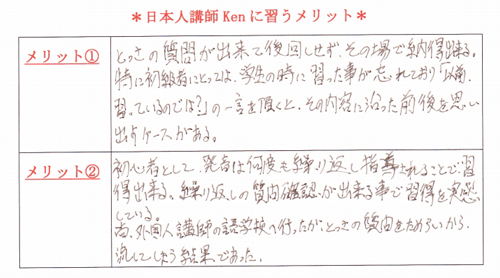 ＊日本人講師 Ken に習うメリット＊
メリット①
とっさの質問が出来て後回しせず、その場で納得出来る。
特に初級者にとっては、学生の時に習った事が忘れており「以前、
習っているのでは？」の一言を頂くと、その内容に沿った前後を思い
出すケースがある。
メリット②
初心者として、発音は何度も繰り返し指導されることで習
得出来る。繰り返しの質問確認が出来る事で習得を実感
している。
尚、外国人講師の語学校へ行ったが、とっさの質問をためらいから
流してしまう結果であった。